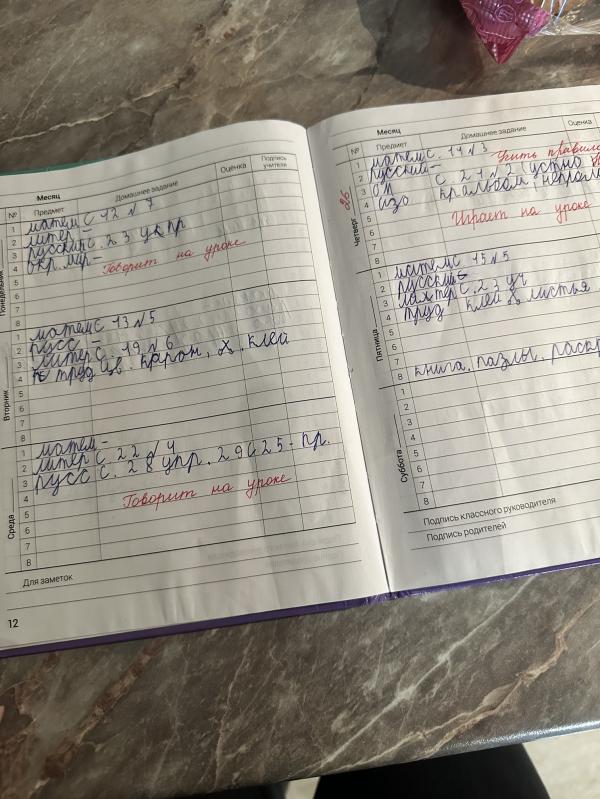 Месяц
№ Предмет Домашнее задание Оценка Подпись учителя
Понедельник
1 матем С 12 № 7
2 литер -
3 русский с. 23 упр
4 окр. мир -
Говорит на уроке
5
6
7
8
Вторник
1 матем С 13 № 5
2 русс -
3 литер С. 19 № 6
4 труд цв. картон, клей
5
6
7
8
Среда
1 матем -
2 литер С 22 № 4
3 русс С. 28 упр. 29 С 25 - пр.
4
Говорит на уроке
5
6
7
8
Для заметок
12
Месяц
№ Предмет Домашнее задание Оценка
Четверг
26
1 матем С. 14 № 3
2 русский - Учить правило
3 ом С 21 № 2 (устно
4 изо кр альбом
5
Играет на уроке
6
7
8
Пятница
1 матем С 15 № 5
2 русский
3 с. 23 уч
4 труд клей листья
5
6
7
8 книга, пазлы, раскр
Суббота
1
2
3
4
5
6
7
8
Подпись классного руководителя
Подпись родителей